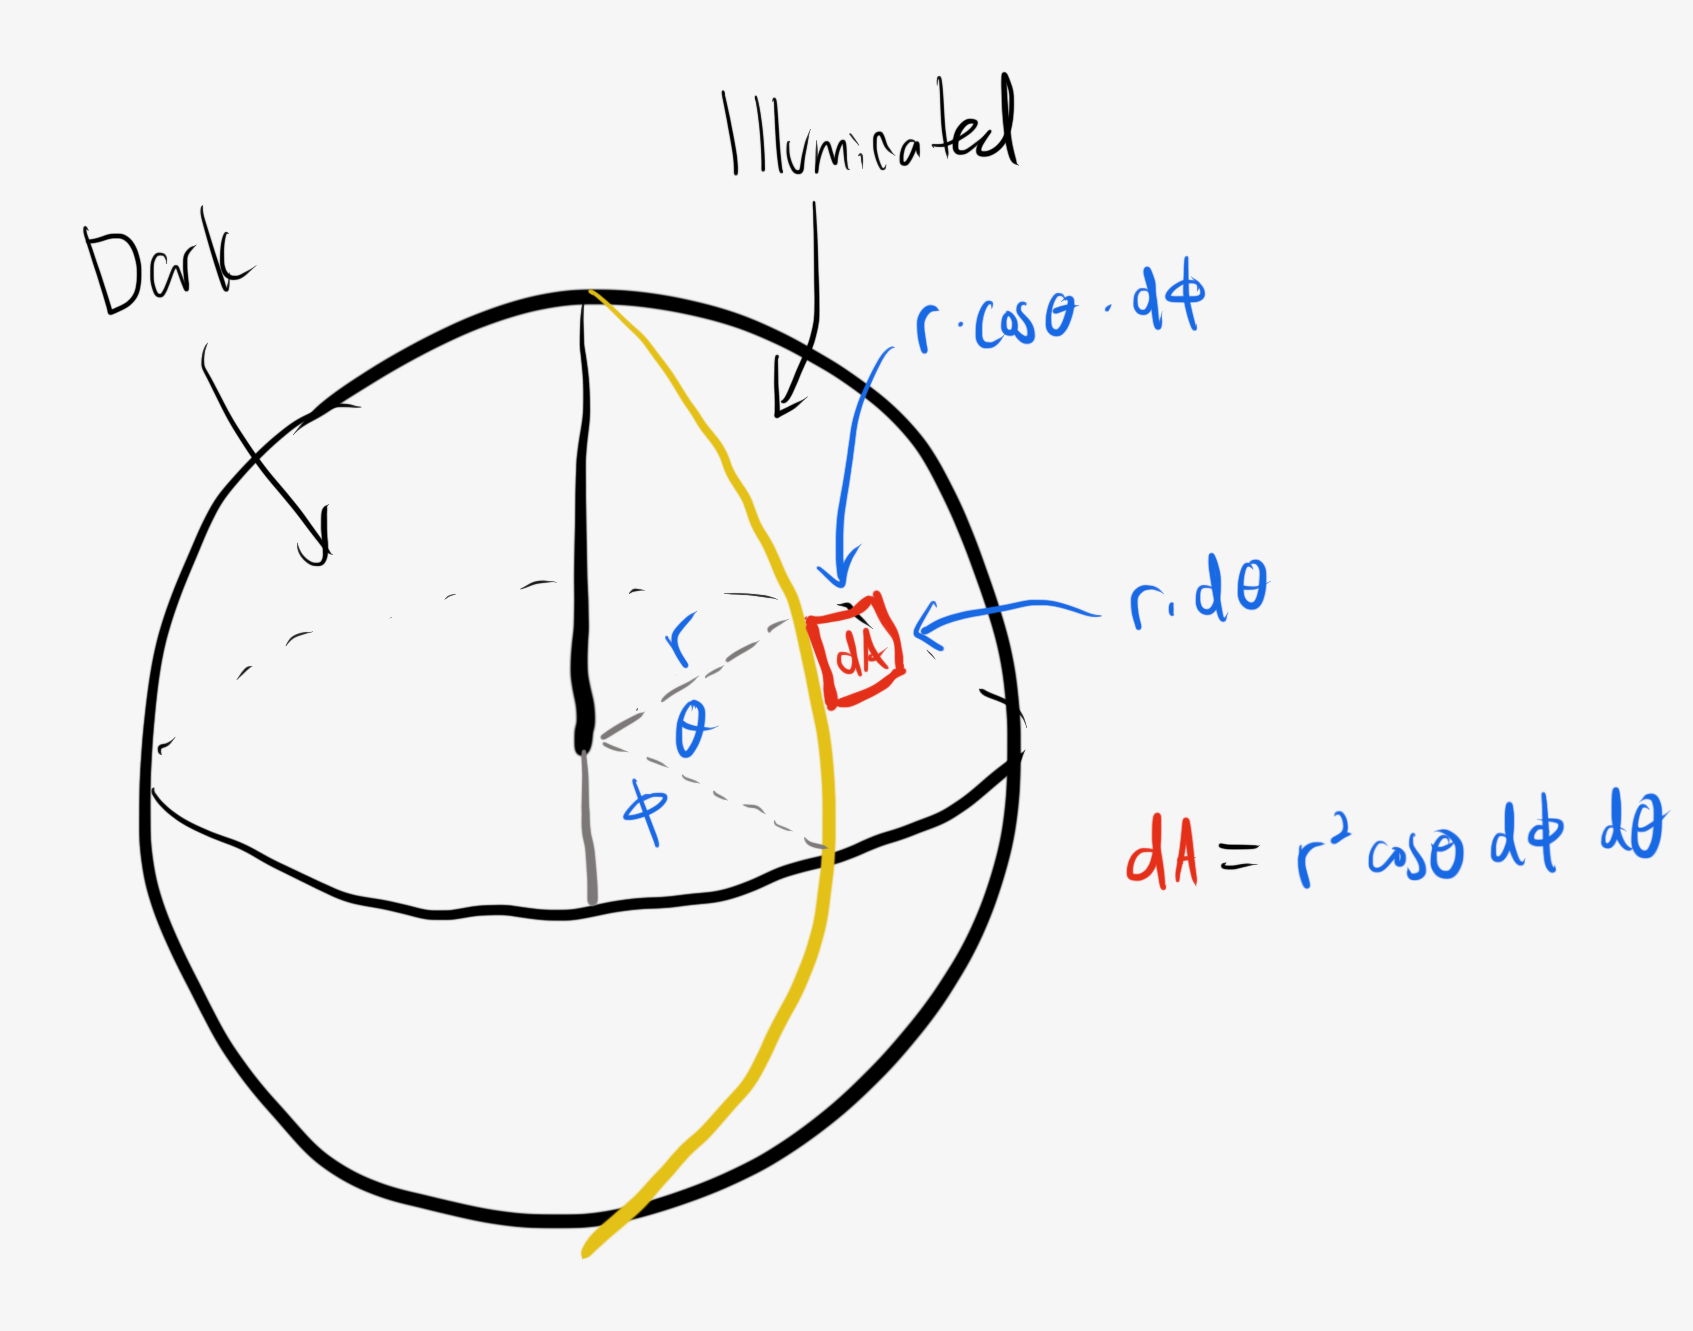 Illuminated
Dark
r·cosθ·dϕ
r·dθ
r
dA
θ
ϕ
dA = r² cosθ dϕ dθ